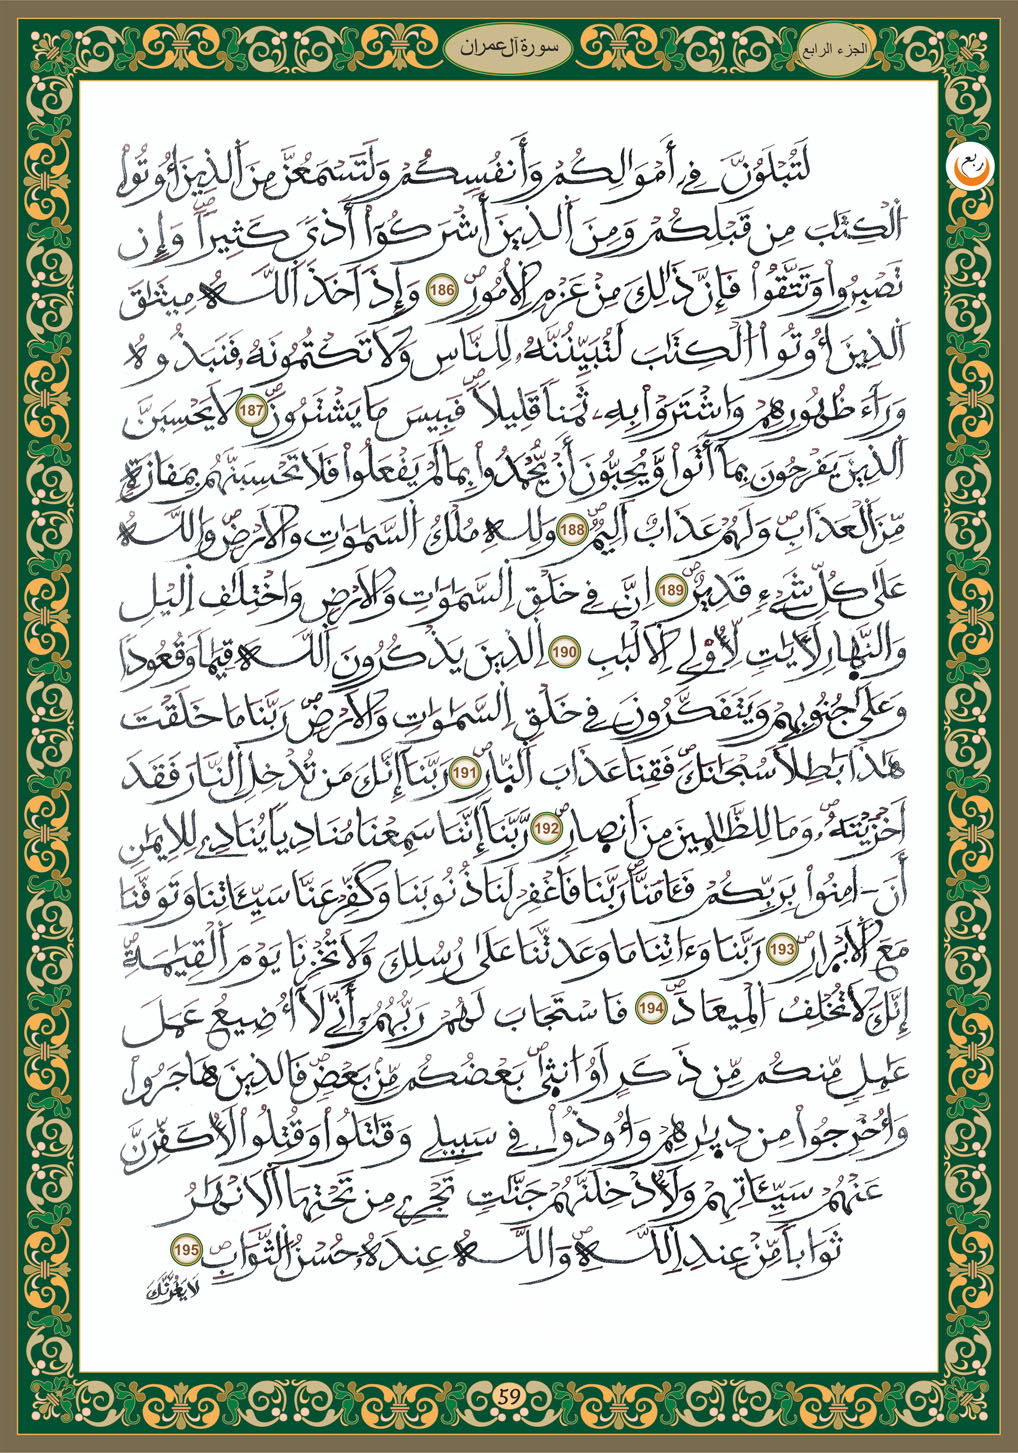 الجزء الرابع
سورة آل عمران
ربع
لَتُبْلَوُنَّ فِے أَمْوَٰلِكُمْ وَأَنفُسِكُمْ وَلَتَسْمَعُنَّ مِنَ اَلذِينَ أُوتُواْ
اُلْكِتَٰبَ مِن قَبْلِكُمْ وَمِنَ اَلذِينَ أَشْرَكُواْ أَذىٗ كَثِيراٗۖ وَإِن
تَصْبِرُواْ وَتَتَّقُواْ فَإِنَّ ذَٰلِكَ مِنْ عَزْمِ اِلُامُورِۖ 186 وَإِذَ اَخَذَ اَللَّهُ مِيثَٰقَ
اَلذِينَ أُوتُواْ اُلْكِتَٰبَ لَتُبَيِّنُنَّهُۥ لِلنَّاسِ وَلَا تَكْتُمُونَهُۥ فَنَبَذُوهُ
وَرَآءَ ظُهُورِهِمْ وَاشْتَرَوْاْ بِهِۦ ثَمَناٗ قَلِيلاٗۖ فَبِيسَ مَا يَشْتَرُونَۖ 187 لَا يَحْسِبَنَّ
اَلذِينَ يَفْرَحُونَ بِمَآ أَتَواْ وَّيُحِبُّونَ أَنْ يُّحْمَدُواْ بِمَا لَمْ يَفْعَلُواْ فَلَا تَحْسِبَنَّهُم بِمَفَازَةٖ
مِّنَ اَلْعَذَابِۖ وَلَهُمْ عَذَابٌ اَلِيمٌۖ 188 وَلِلهِ مُلْكُ اُلسَّمَٰوَٰتِ وَالَارْضِۖ وَاللَّهُ
عَلَىٰ كُلِّ شَےْءٖ قَدِيرٌۖ 189 اِنَّ فِے خَلْقِ اِلسَّمَٰوَٰتِ وَالَارْضِ وَاخْتِلَٰفِ اِليْلِ
وَالنَّهارِ لَأٓيَٰتٖ لِّأُوْلِے اِلَالْبَٰبِ 190 اِلذِينَ يَذْكُرُونَ اَللَّهَ قِيَٰماٗ وَقُعُوداٗ
وَعَلَىٰ جُنُوبِهِمْ وَيَتَفَكَّرُونَ فِے خَلْقِ اِلسَّمَٰوَٰتِ وَالَارْضِۖ رَبَّنَا مَا خَلَقْتَ
هَٰذَا بَٰطِلاٗ سُبْحَٰنَكَۖ فَقِنَا عَذَابَ اَلنّارِۖ 191 رَبَّنَآ إِنَّكَ مَن تُدْخِلِ اِلنَّارَ فَقَدَ
اَخْزَيْتَهُۥۖ وَمَا لِلظَّٰلِمِينَ مِنَ اَنصارٖۖ 192 رَّبَّنَآ إِنَّنَا سَمِعْنَا مُنَادِياٗ يُنَادِے لِلِايمَٰنِ
أَنَ اٰمِنُواْ بِرَبِّكُمْ فَـَٔامَنَّاۖ رَبَّنَا فَاغْفِرْ لَنَا ذُنُوبَنَا وَكَفِّرْ عَنَّا سَيِّـَٔاتِنَا وَتَوَفَّنَا
مَعَ اَلَابْرارِۖ 193 رَبَّنَا وَءَاتِنَا مَا وَعَدتَّنَا عَلَىٰ رُسُلِكَ وَلَا تُخْزِنَا يَوْمَ اَلْقِيَٰمَةِۖ
إِنَّكَ لَا تُخْلِفُ اُلْمِيعَادَۖ 194 فَاسْتَجَابَ لَهُمْ رَبُّهُمُۥٓ أَنِّے لَآ أُضِيعُ عَمَلَ
عَٰمِلٖ مِّنكُم مِّن ذَكَرٍ اَوُ ا۟نثَىٰۖ بَعْضُكُم مِّنۢ بَعْضٖۖ فَالذِينَ هَاجَرُواْ
وَأُخْرِجُواْ مِن دِيٰرِهِمْ وَأُوذُواْ فِے سَبِيلِے وَقَٰتَلُواْ وَقُتِلُواْ لَأُكَفِّرَنَّ
عَنْهُمْ سَيِّـَٔاتِهِمْ وَلَأُدْخِلَنَّهُمْ جَنَّٰتٖ تَجْرِے مِن تَحْتِهَا اَلَانْهَٰرُ
ثَوَاباٗ مِّنْ عِندِ اِللَّهِۖ وَاللَّهُ عِندَهُۥ حُسْنُ اُلثَّوَابِۖ 195
لَا يَغُرَّنَّكَ
59